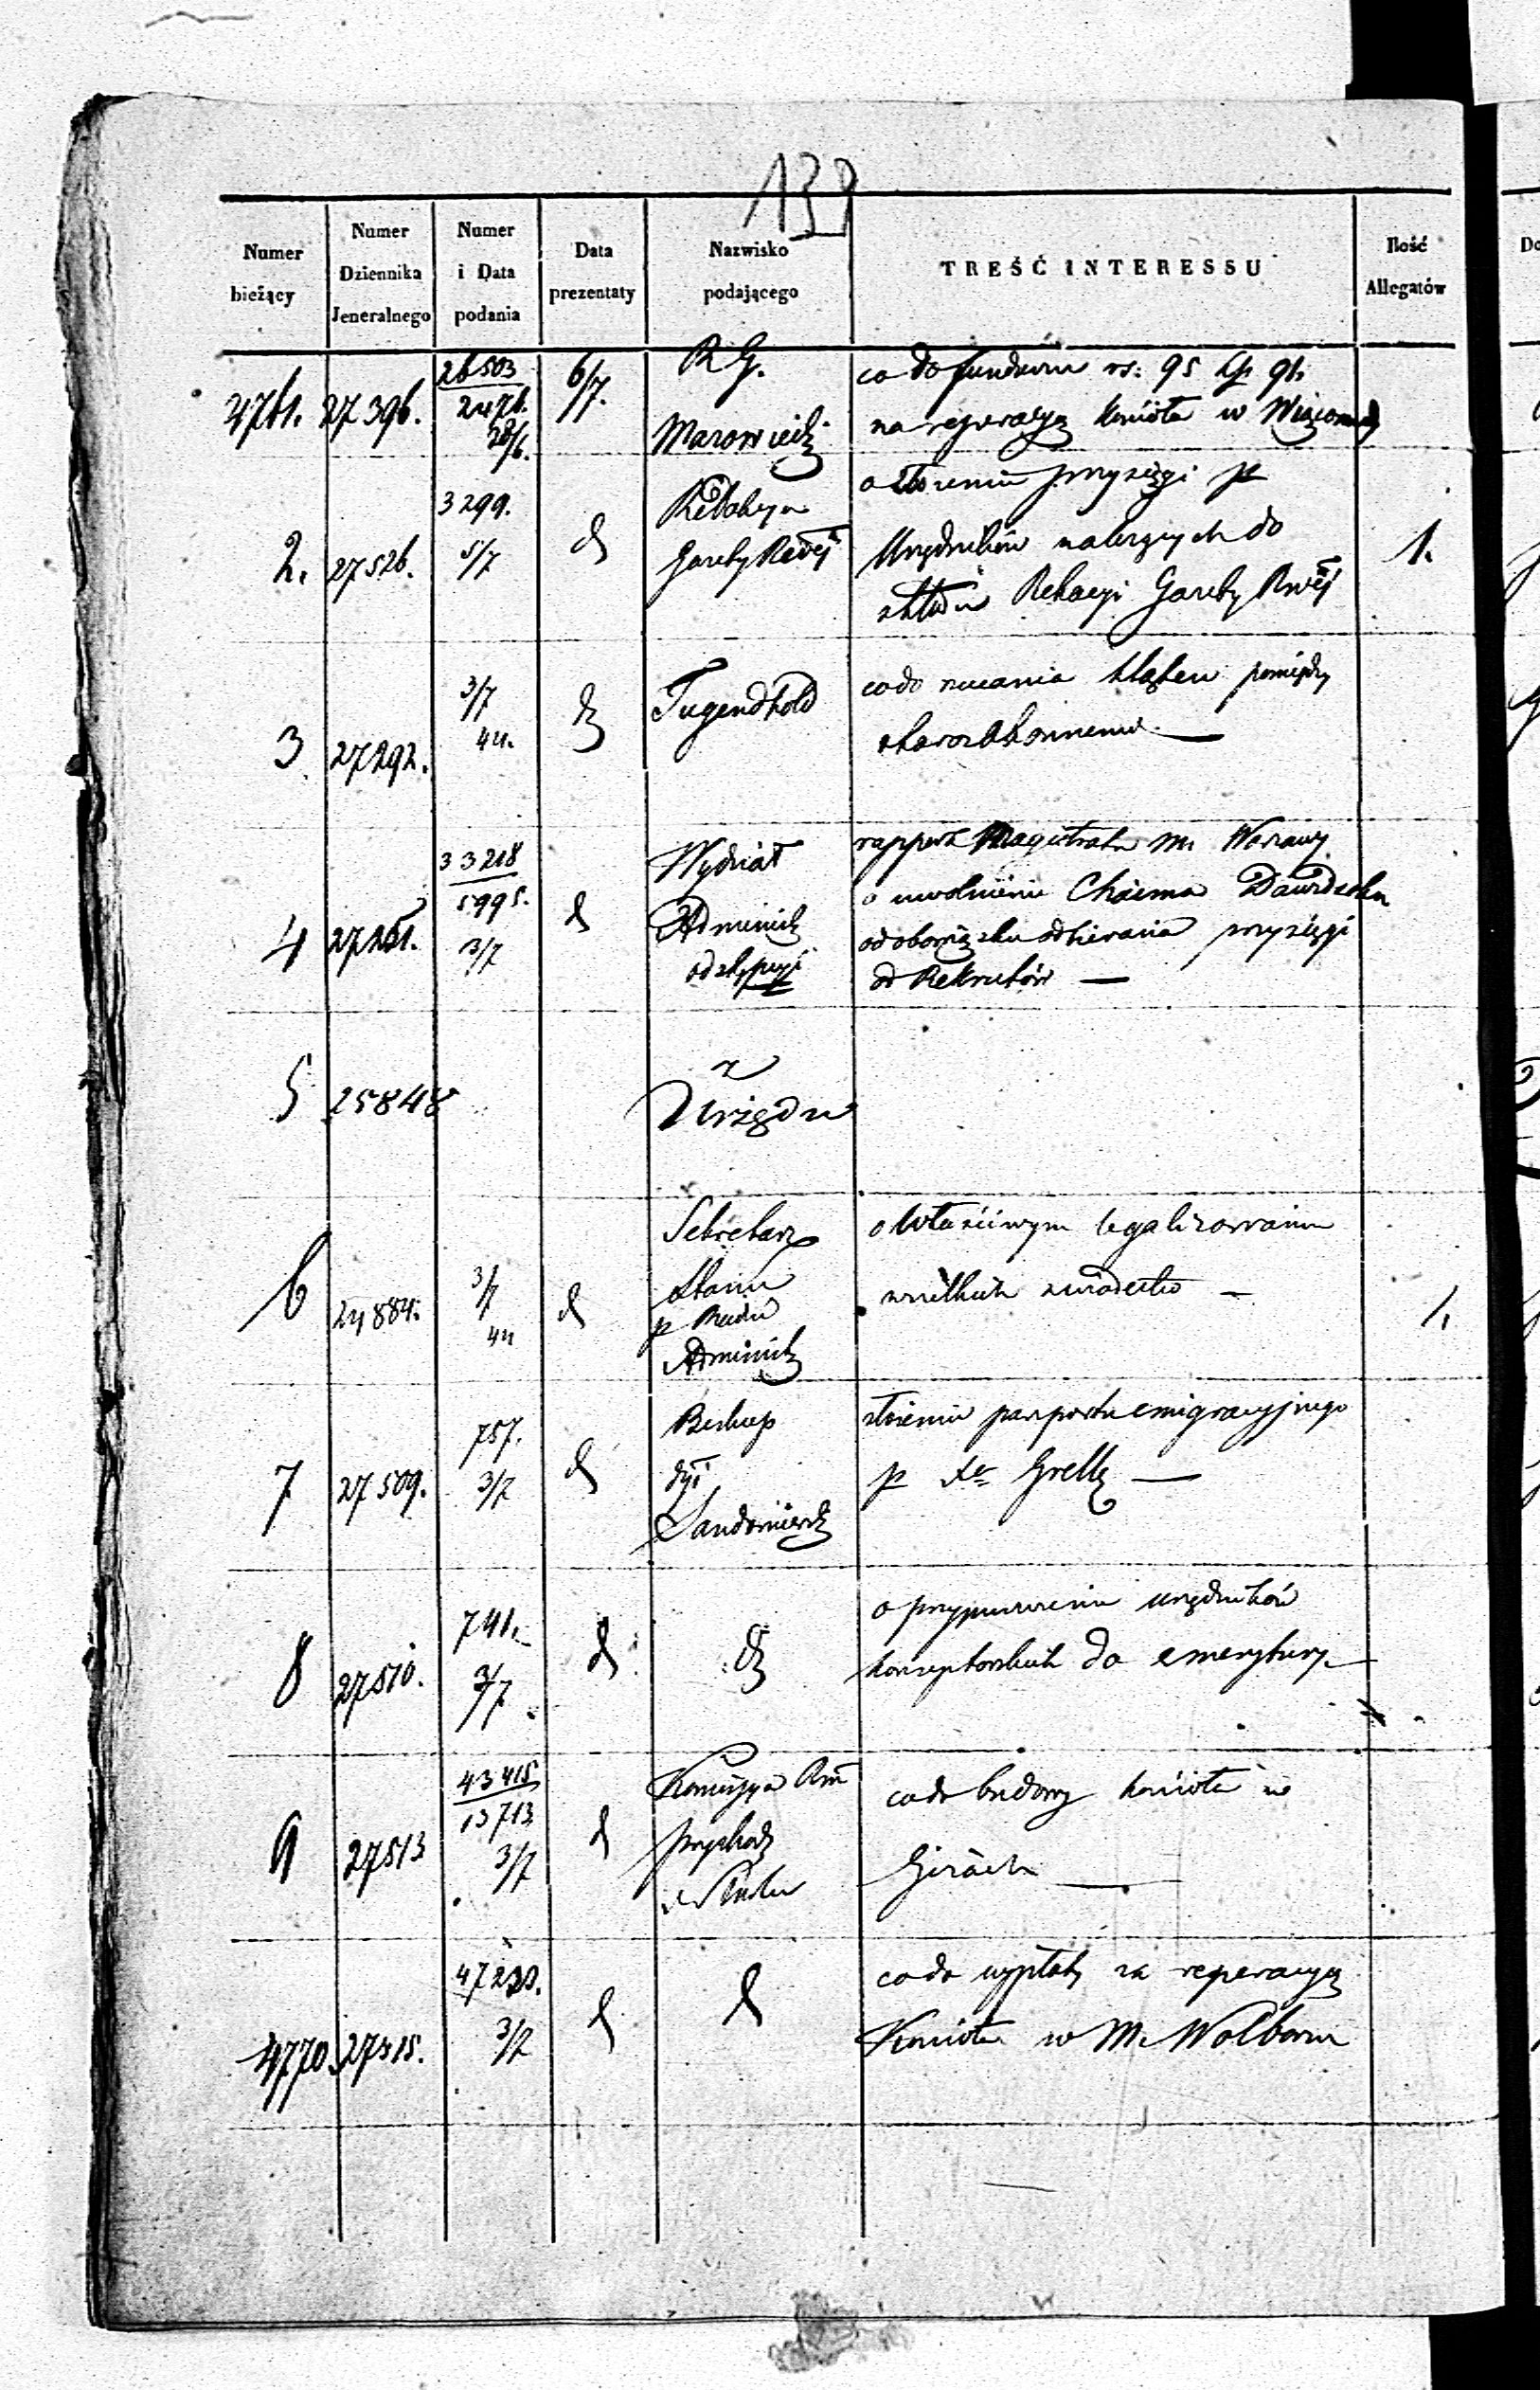 138
Numer bieżący
Numer Dziennika Jeneralnego
Numer i Data podania
Data prezentaty
Nazwisko podającego
TREŚĆ INTERESSU
Ilość Allegatów
4761. 27396. 26503 2476. 28/6. 6/7. R. G. Mazowieck
co do funduszu rs: 95 kp 91.
na reperacyą kościoła w Wiązowny
2. 27526. 3299. 5/7 d Redakcya Gazety Rząd
o złożeniu przysięgi p
Urzędników należących do
składu Redakcyi Gazety Rząd
1.
3 27292. 3/7 44. d Tugendhold
co do rzucania klątew pomiędzy
starozakonnemi —
4 27251. 33218 5995. 3/7 d Wydział Administ
rapport Magistratu m. Warszawy
o uwolnienie Chaima Dawid
od obowiązku odbierania przysięgi
od Rekrutów —
5 25848 z Urzędu
6 24884. 3/7 44 d Sekretarz Stanu p Radzie Administ
o właściwym legalizowaniu
wszelkich świadectw —
1.
7 27509. 757. 3/7 d Biskup dyi Sandomiersk
złożeniu paszportu emigracyjnego
p Xe —
8 27510. 741. 3/7 d d
o przypuszczeniu urzędników
konsystorskich do emerytury
9 27513 43415 13713 3/7 d Komissya Rzą przychod i Skarbu
co do budowy kościoła w
Girach —
4770. 27515. 3/7 d d
co do wypłaty za reperacyą
Kościoła w M. Wolborzu